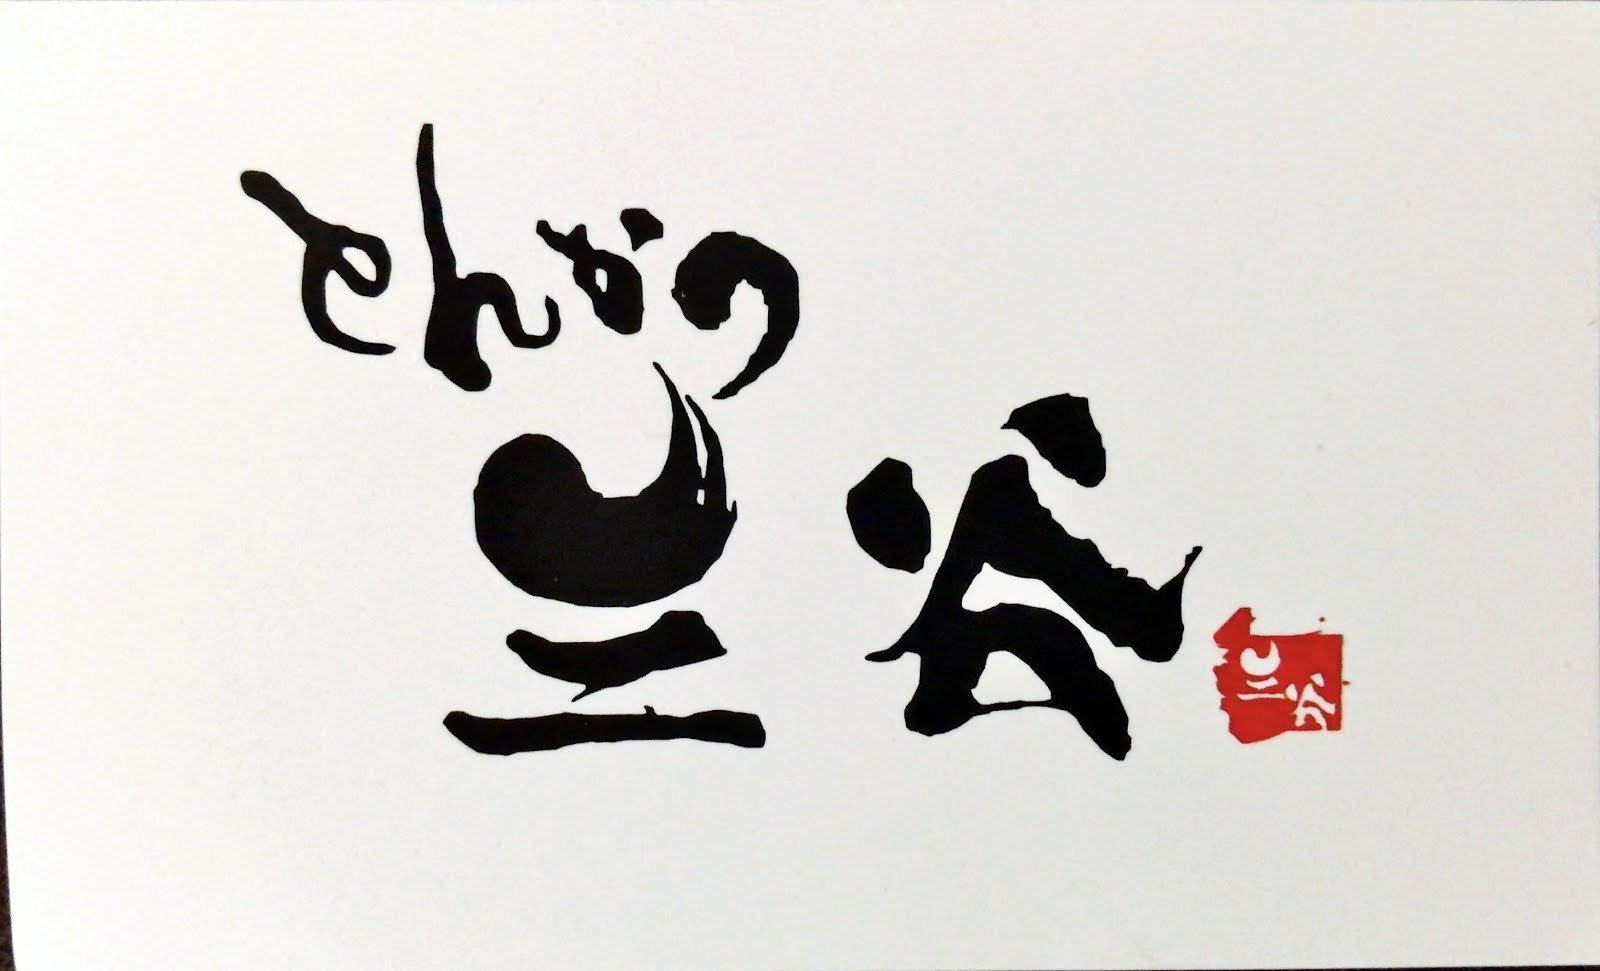 とんかつ
三谷
三谷